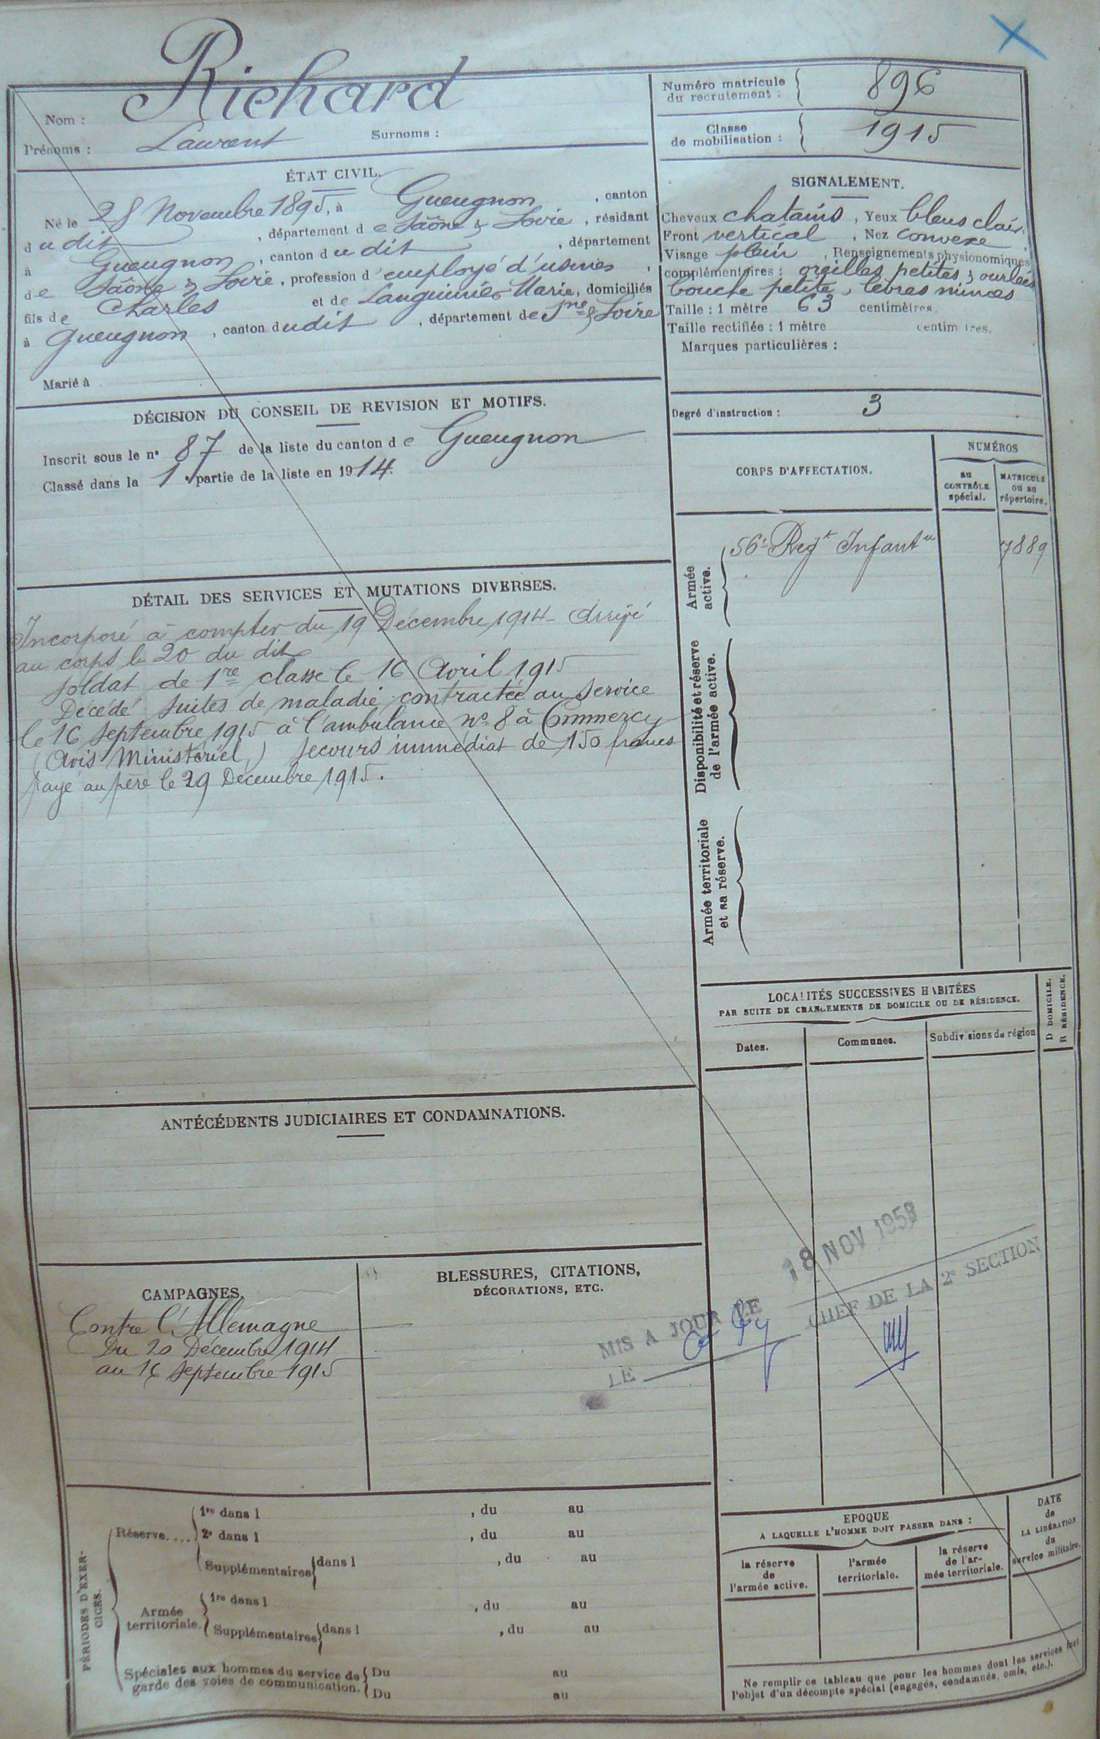 Richard
Nom :
Laurent
Prénoms :
Surnoms :
ÉTAT CIVIL.
Né le 28 Novembre 1895, à Gueugnon, canton
dudit, département de Saône & Loire, résidant
à Gueugnon, canton dudit, département
de Saône & Loire, profession d'employé d'usines,
fils de Charles et de Marie, domiciliés
à Gueugnon, canton dudit, département de Sne & Loire
Marié à
DÉCISION DU CONSEIL DE REVISION ET MOTIFS.
Inscrit sous le n° 87 de la liste du canton de Gueugnon
Classé dans la 1 partie de la liste en 1914.
DÉTAIL DES SERVICES ET MUTATIONS DIVERSES.
Incorporé à compter du 19 Décembre 1914 - Arrivé
au corps le 20 du dit
Soldat de 1re classe le 16 Avril 1915
Décédé suites de maladie contractée au service
le 16 Septembre 1915 à l'ambulance n° 8 à Commercy
(Avis Ministériel) Secours immédiat de 150 francs
payé au père le 29 Décembre 1915.
ANTÉCÉDENTS JUDICIAIRES ET CONDAMNATIONS.
CAMPAGNES.
Contre l'Allemagne
Du 20 Décembre 1914
au 16 Septembre 1915
BLESSURES, CITATIONS,
DÉCORATIONS, ETC.
PÉRIODES D'EXER-
CICES.
Réserve....
1re dans l , du au
2e dans l , du au
Supplémentaires dans l , du au
Armée
territoriale.
1re dans l , du au
Supplémentaires dans l , du au
Spéciales aux hommes du service de
garde des voies de communication.
Du au
Du au
Numéro matricule
du recrutement :
896
Classe
de mobilisation :
1915
SIGNALEMENT.
Cheveux chatains, Yeux bleus clairs,
Front vertical, Nez convexe,
Visage plein, Renseignements physionomiques
complémentaires : oreilles petites & ourlées
bouche petite, lèvres minces
Taille : 1 mètre 63 centimètres.
Taille rectifiée : 1 mètre centimètres.
Marques particulières :
Degré d'instruction : 3
CORPS D'AFFECTATION.
NUMÉROS
AU
CONTRÔLE
spécial.
MATRICULE
OU AU
répertoire.
Armée
active.
56e Regt Infantie
7889
Disponibilité et réserve
de l'armée active.
Armée territoriale
et sa réserve.
LOCALITÉS SUCCESSIVES HABITÉES
PAR SUITE DE CHANGEMENTS DE DOMICILE OU DE RÉSIDENCE.
D DOMICILE.
R RÉSIDENCE.
Dates.
Communes.
Subdivisions de région
18 NOV 1953
MIS A JOUR LE
CHEF DE LA 2e SECTION
LE
EPOQUE
A LAQUELLE L'HOMME DOIT PASSER DANS :
la réserve
de
l'armée active.
l'armée
territoriale.
la réserve
de l'ar-
mée territoriale.
DATE
de
LA LIBÉRATION
du
service militaire.
Ne remplir ce tableau que pour les hommes dont les services font
l'objet d'un décompte spécial (engagés, condamnés, omis, etc.).